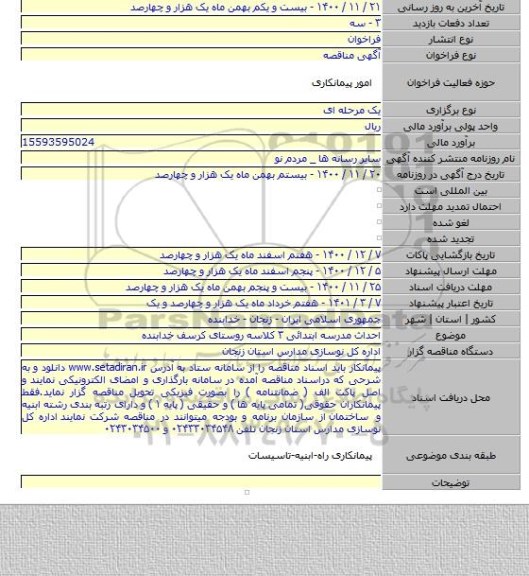 تاریخ آخرین به روز رسانی ۲۱ / ۱۱ / ۱۴۰۰ - بیست و یکم بهمن ماه یک هزار و چهارصد
تعداد دفعات بازدید ۳ - سه
نوع انتشار فراخوان
نوع فراخوان آگهی مناقصه
حوزه فعالیت فراخوان امور پیمانکاری
نوع برگزاری یک مرحله ای
واحد پولی برآورد مالی ریال
برآورد مالی 15593595024
نام روزنامه منتشر کننده آگهی سایر رسانه ها _ مردم نو
تاریخ درج آگهی در روزنامه ۲۰ / ۱۱ / ۱۴۰۰ - بیستم بهمن ماه یک هزار و چهارصد
بین المللی است
احتمال تمدید مهلت دارد
لغو شده
تجدید شده
تاریخ بازگشایی پاکات ۷ / ۱۲ / ۱۴۰۰ - هفتم اسفند ماه یک هزار و چهارصد
مهلت ارسال پیشنهاد ۵ / ۱۲ / ۱۴۰۰ - پنجم اسفند ماه یک هزار و چهارصد
مهلت دریافت اسناد ۲۵ / ۱۱ / ۱۴۰۰ - بیست و پنجم بهمن ماه یک هزار و چهارصد
تاریخ اعتبار پیشنهاد ۷ / ۳ / ۱۴۰۱ - هفتم خرداد ماه یک هزار و چهارصد و یک
کشور | استان | شهر جمهوری اسلامی ایران - زنجان - خدابنده
موضوع احداث مدرسه ابتدائی ۳ کلاسه روستای کرسف خدابنده
دستگاه مناقصه گزار اداره کل نوسازی مدارس استان زنجان
محل دریافت اسناد پیمانکار باید اسناد مناقصه را از سامانه ستاد به آدرس www.setadiran.ir دانلود و به
شرحی که دراسناد مناقصه آمده در سامانه بارگذاری و امضای الکترونیکی نمایند و
اصل پاکت الف ( ضمانتنامه ) را بصورت فیزیکی تحویل مناقصه گزار نماید.فقط
پیمانکاران حقوقی( تمامی پایه ها ) و حقیقی ( پایه ۱ ) و دارای رتبه بندی رشته ابنیه
و ساختمان از سازمان برنامه و بودجه میتوانند در مناقصه شرکت نمایند اداره کل
نوسازی مدارس استان زنجان تلفن ۰۲۴۳۳۰۳۴۵۴۸ و ۰۲۴۳۳۰۳۴۵۰۰
طبقه بندی موضوعی پیمانکاری راه-ابنیه-تاسیسات
توضیحات
ParsNamadData
۰۲۱-۸۸۳۴۹۶۷۰-۵